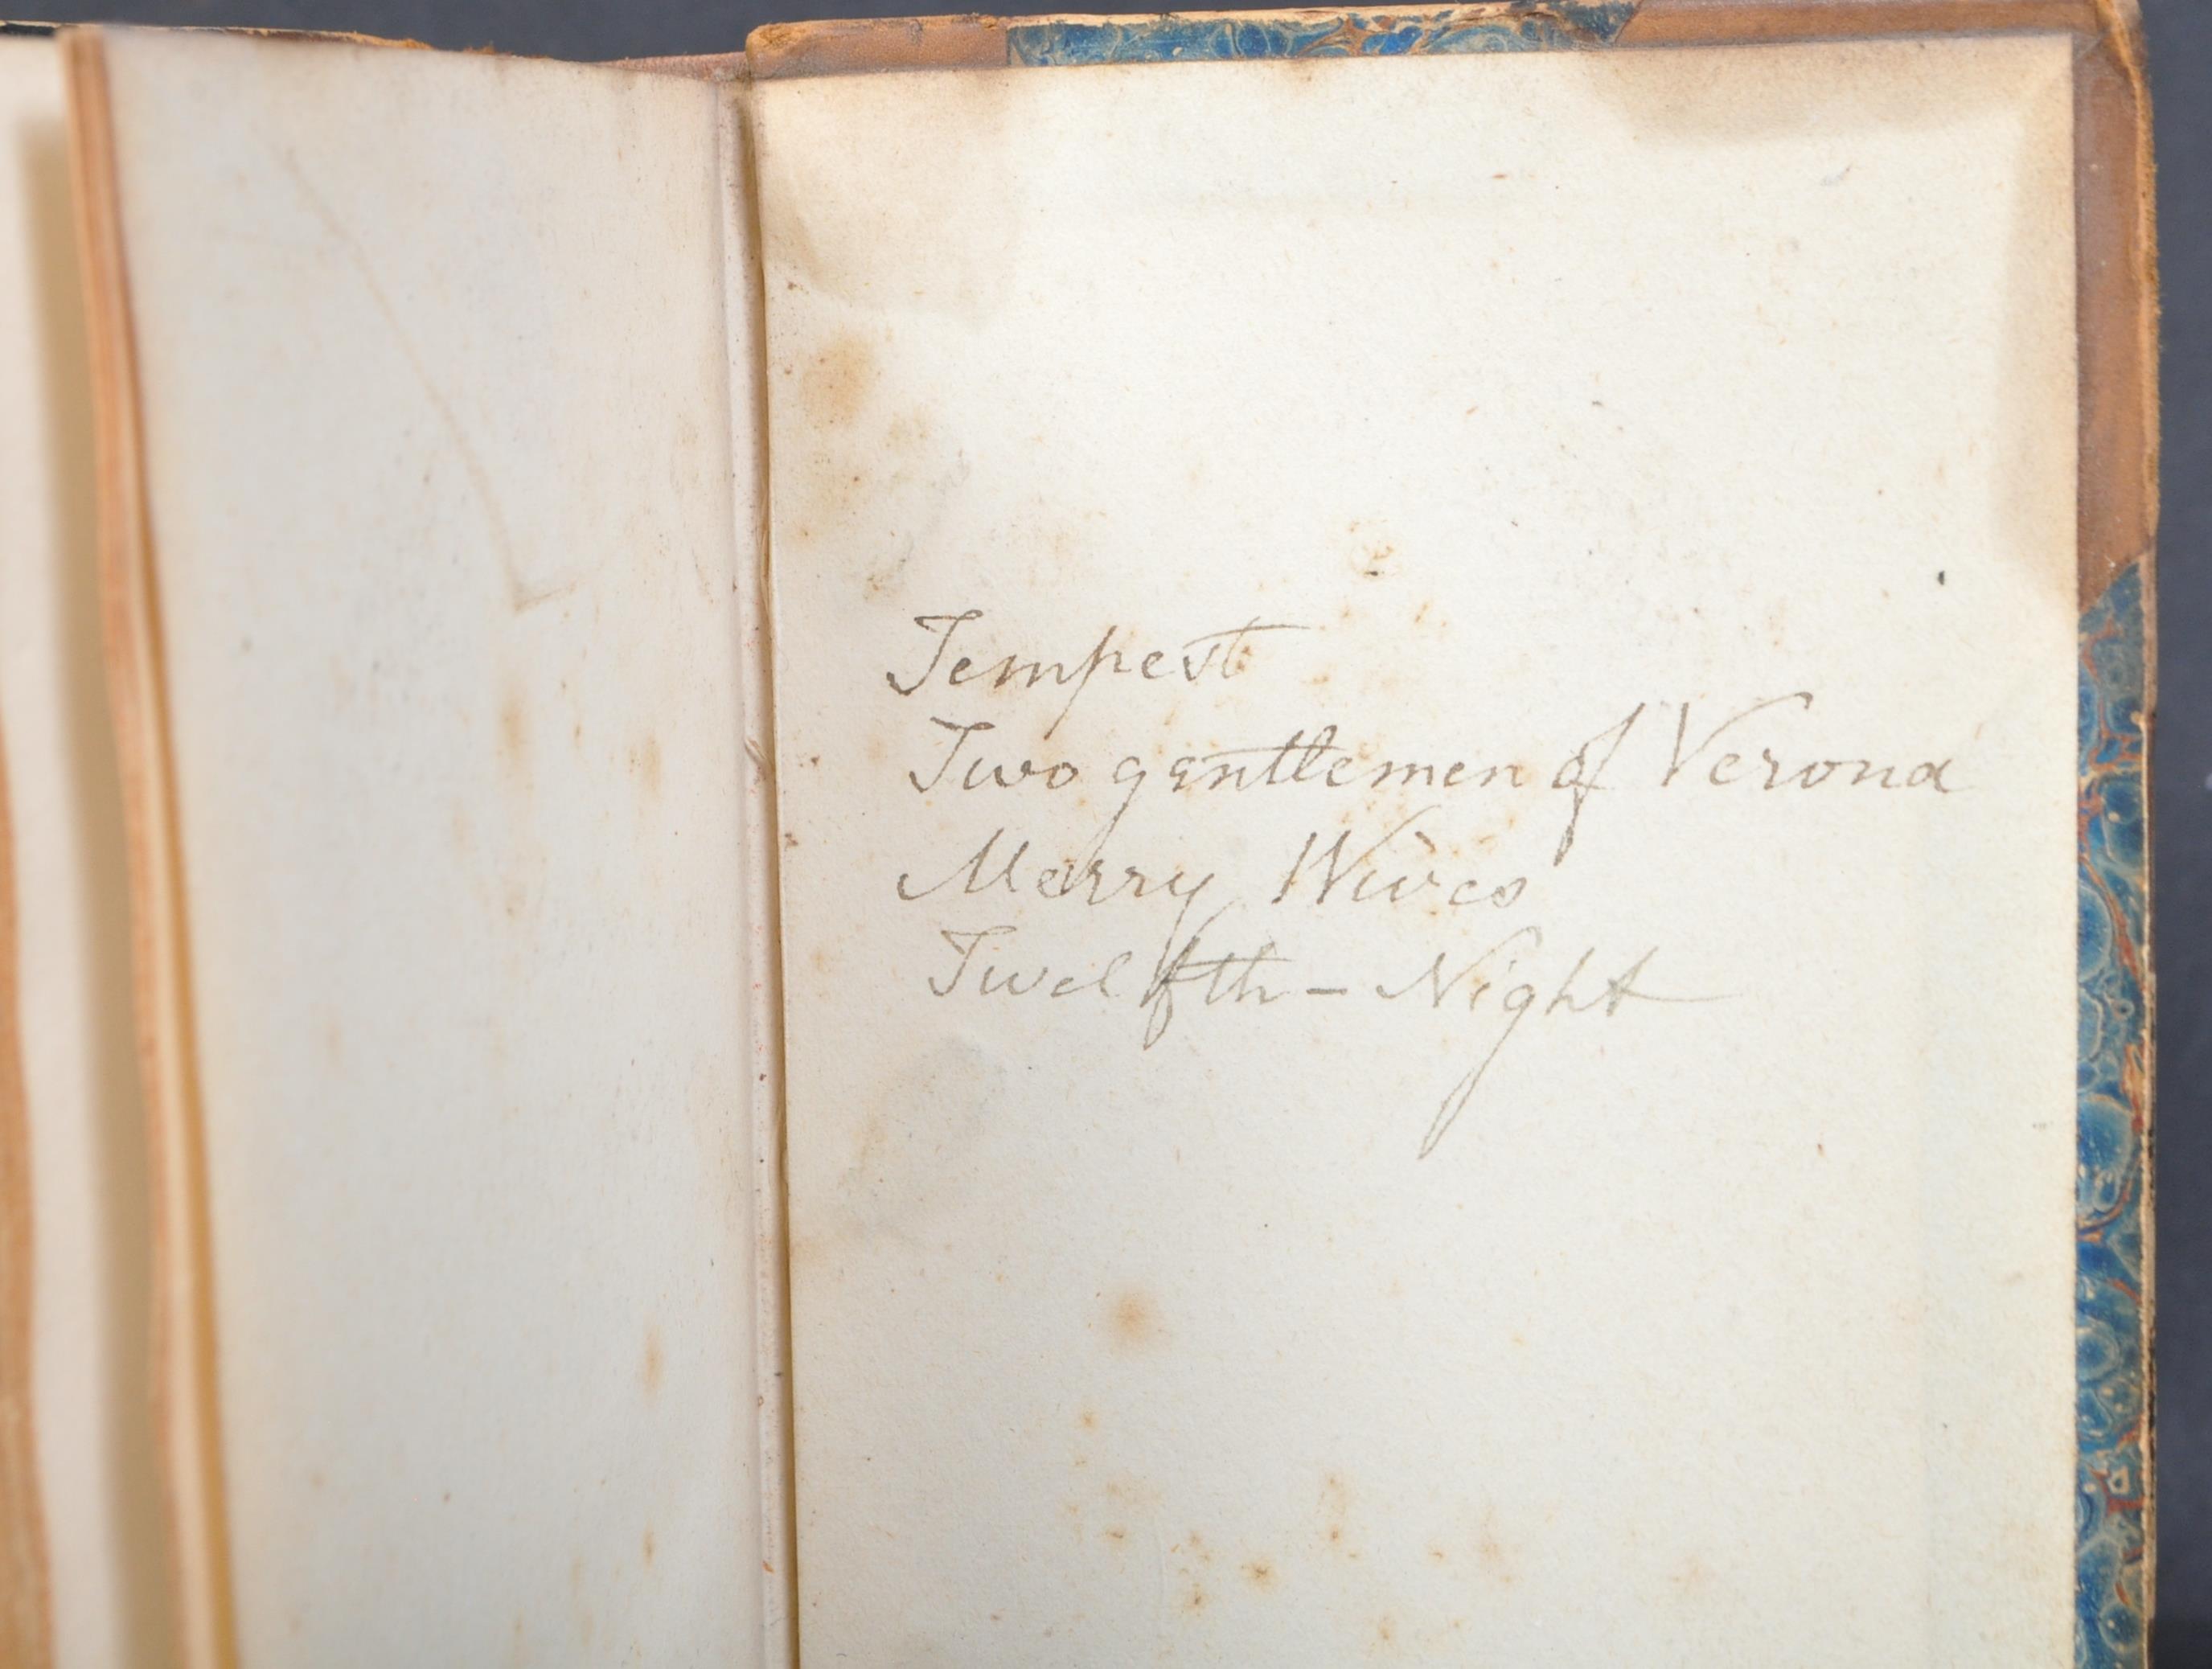 Tempest
Two gentlemen of Verona
Merry Wives
Twelfth - Night